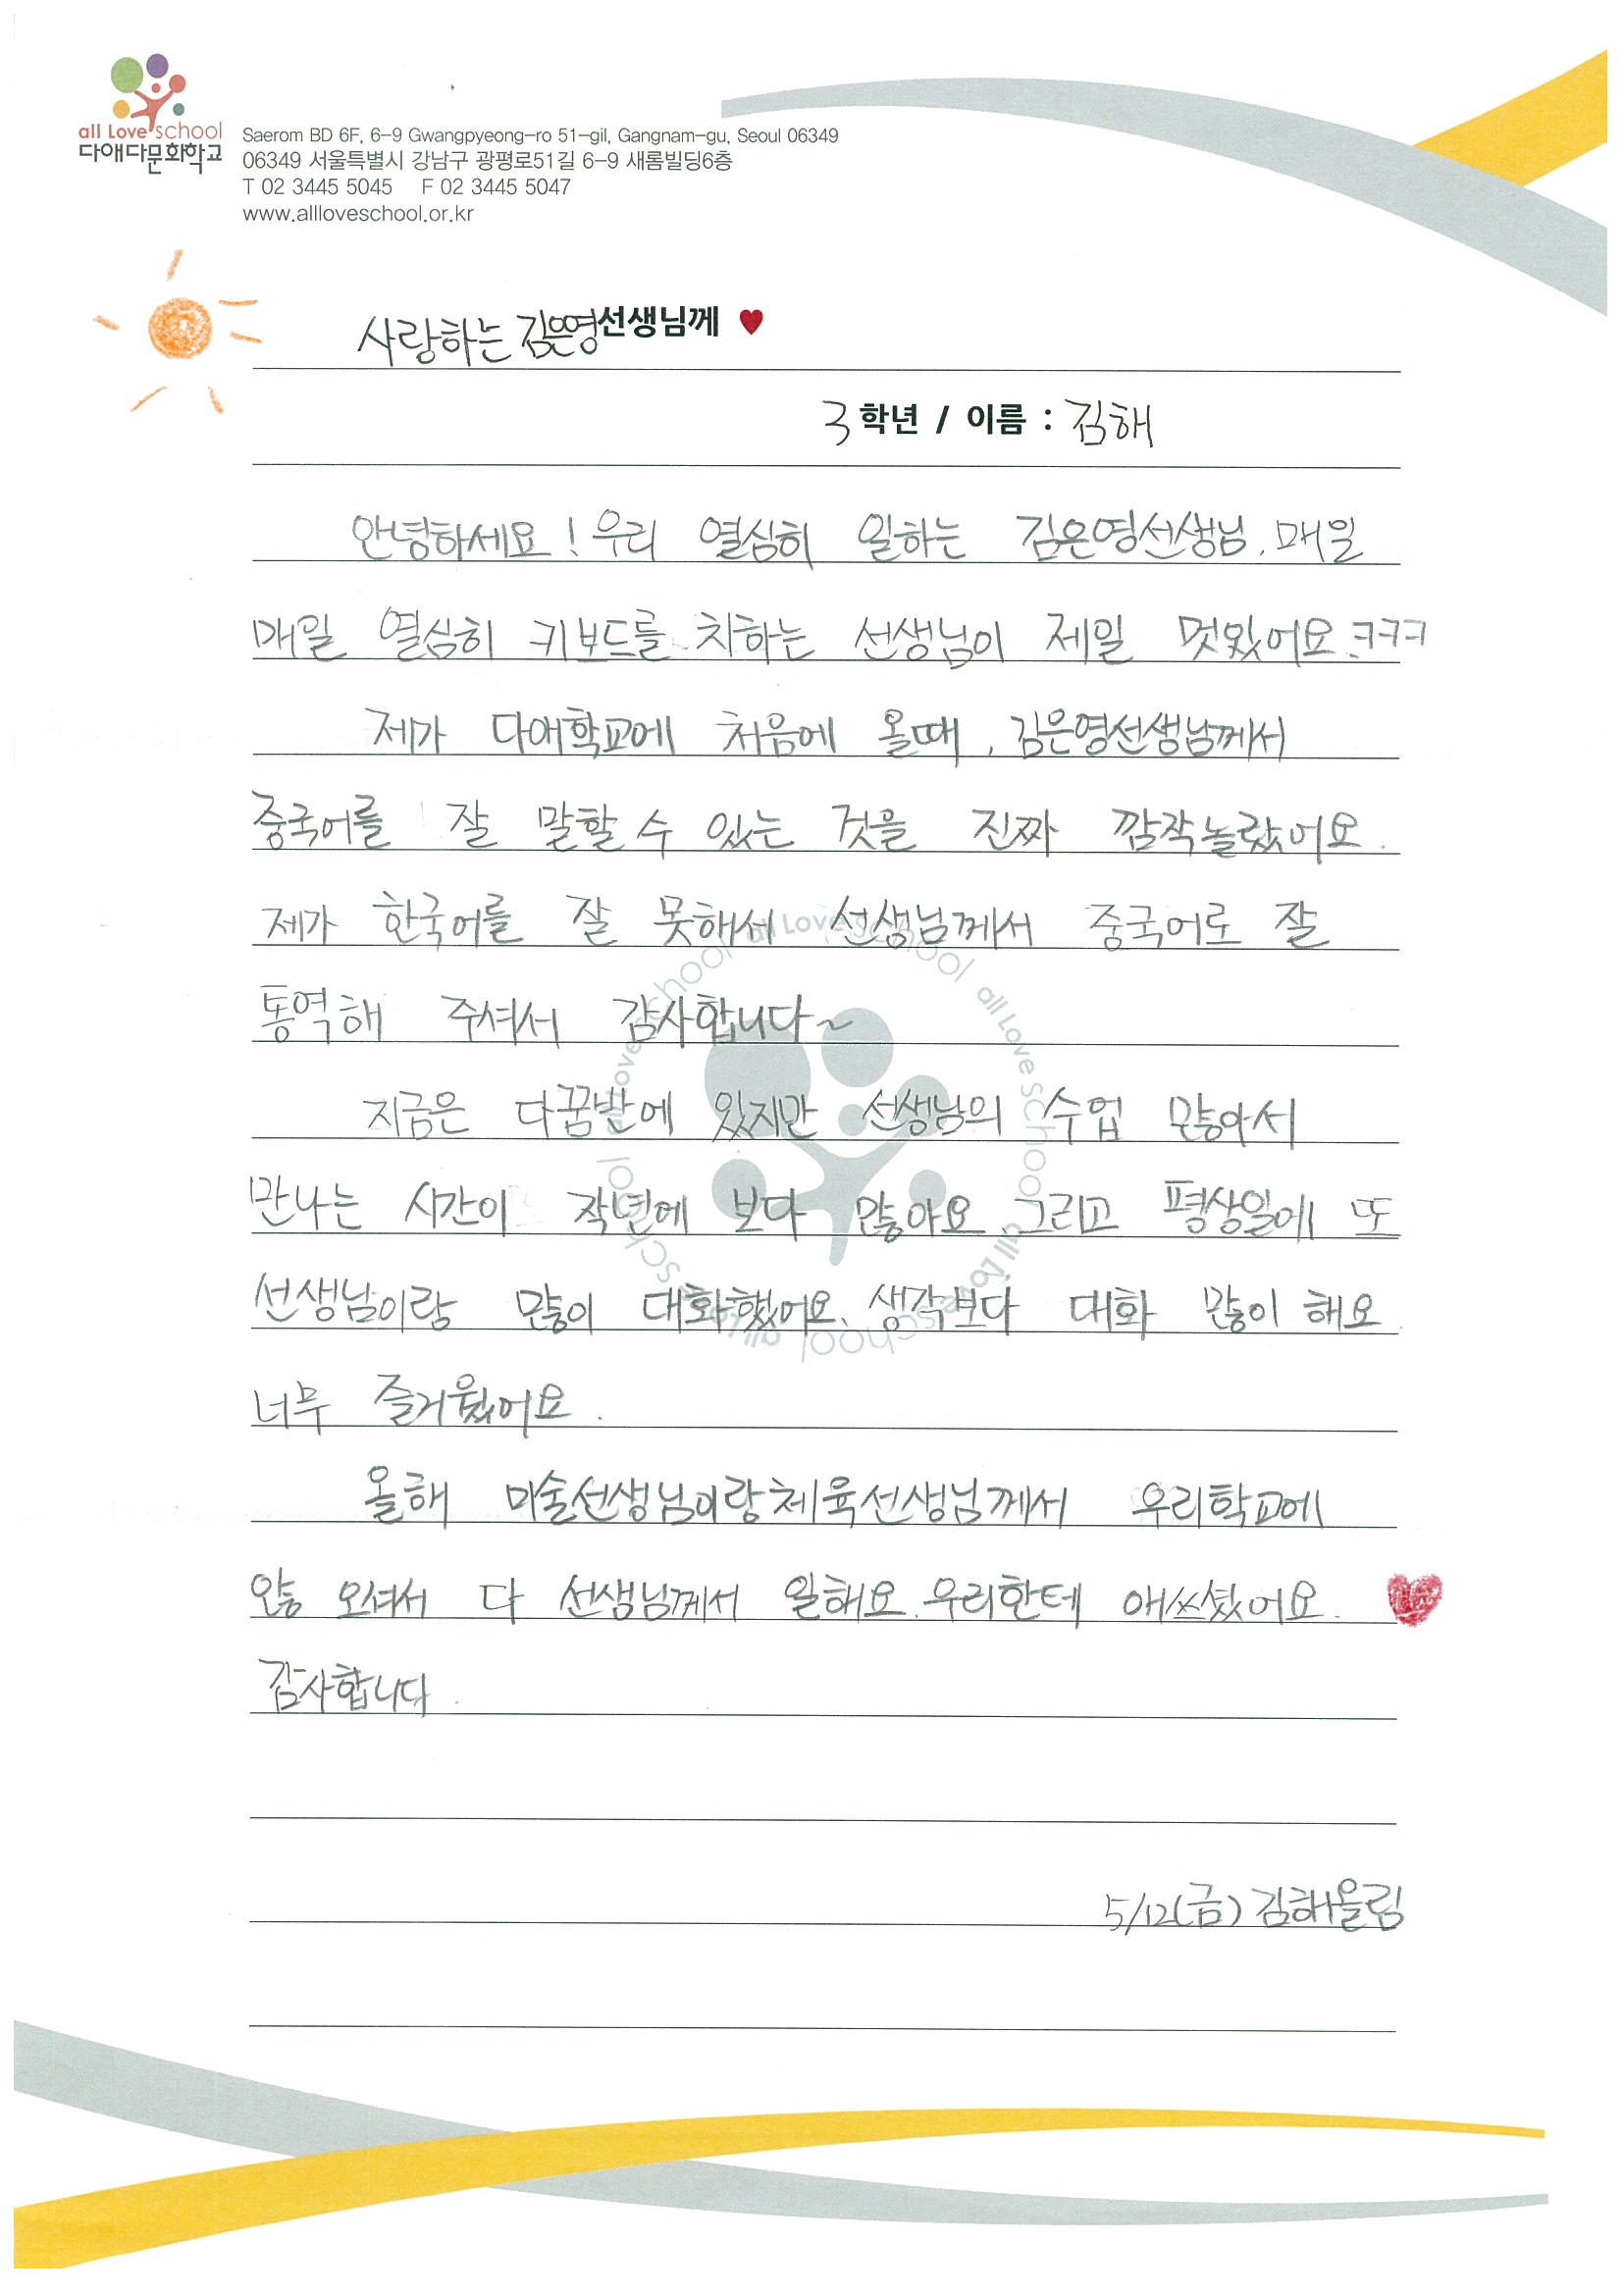 all Love school
다애다문화학교
Saerom BD 6F, 6-9 Gwangpyeong-ro 51-gil, Gangnam-gu, Seoul 06349
06349 서울특별시 강남구 광평로51길 6-9 새롬빌딩6층
T 02 3445 5045 F 02 3445 5047
www.allloveschool.or.kr
사랑하는 김은영선생님께 ♥
3학년 / 이름 : 김해
안녕하세요! 우리 열심히 일하는 김은영선생님, 매일
매일 열심히 키보드를 치하는 선생님이 제일 멋있어요.ㅋㅋㅋ
제가 다애학교에 처음에 올때, 김은영선생님께서
중국어를 잘 말할 수 있는 것을 진짜 깜작놀랐어요.
제가 한국어를 잘 못해서 선생님께서 중국어로 잘
통역해 주셔서 감사합니다~
지금은 다꿈반에 있지만 선생님의 수업 많아서
만나는 시간이 작년에 보다 많아요. 그리고 평상일에 또
선생님이랑 많이 대화했어요. 생각보다 대화 많이 해요
너무 즐거웠어요.
올해 미술선생님이랑체육선생님께서 우리학교에
않 오셔서 다 선생님께서 일해요. 우리한테 애쓰셨어요.
감사합니다.
5/12(금) 김해올림
all Love school all Love school all Love school all Love school